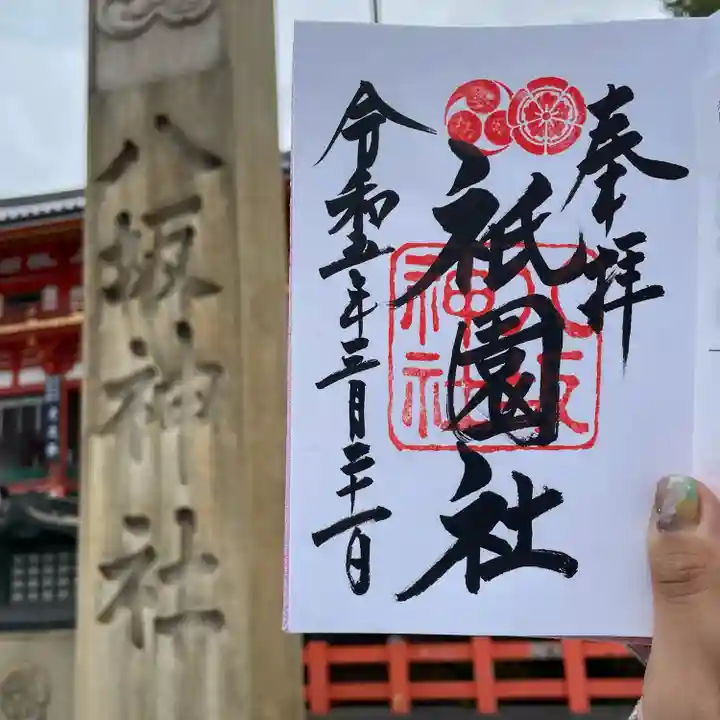 八坂神社
奉拝
祇園社
八坂神社
令和五年三月二十一日